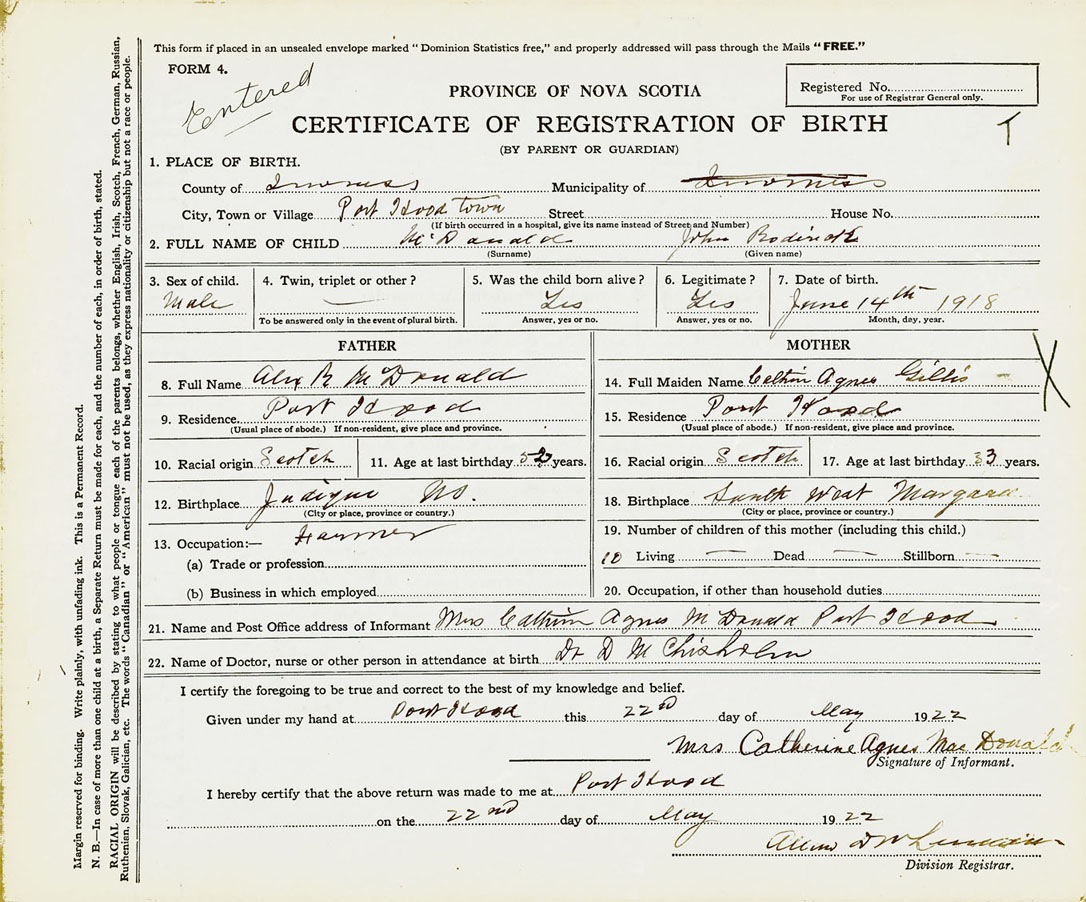 This form if placed in an unsealed envelope marked "Dominion Statistics free," and properly addressed will pass through the Mails "FREE."
FORM 4.
Entered
Registered No.
For use of Registrar General only.
PROVINCE OF NOVA SCOTIA
CERTIFICATE OF REGISTRATION OF BIRTH
(BY PARENT OR GUARDIAN)
1. PLACE OF BIRTH.
County of Inverness Municipality of Inverness
City, Town or Village Port Hood town Street House No.
(If birth occurred in a hospital, give its name instead of Street and Number)
2. FULL NAME OF CHILD McDonald John
(Surname) (Given name)
3. Sex of child. 4. Twin, triplet or other? 5. Was the child born alive? 6. Legitimate? 7. Date of birth.
Male — Yes Yes June 14th 1918
To be answered only in the event of plural birth. Answer, yes or no. Answer, yes or no. Month, day, year.
FATHER
8. Full Name Alex R McDonald
9. Residence Port Hood
(Usual place of abode.) If non-resident, give place and province.
10. Racial origin Scotch 11. Age at last birthday years.
12. Birthplace Judique NS.
(City or place, province or country.)
13. Occupation:— Farmer
(a) Trade or profession
(b) Business in which employed
MOTHER
14. Full Maiden Name Agnes Gillis
15. Residence Port Hood
(Usual place of abode.) If non-resident, give place and province.
16. Racial origin Scotch 17. Age at last birthday 33 years.
18. Birthplace South West Margaree
(City or place, province or country.)
19. Number of children of this mother (including this child.)
10 Living — Dead — Stillborn —
20. Occupation, if other than household duties
21. Name and Post Office address of Informant Mrs Agnes McDonald Port Hood
22. Name of Doctor, nurse or other person in attendance at birth Dr D M Chisholm
I certify the foregoing to be true and correct to the best of my knowledge and belief.
Given under my hand at Port Hood this 22nd day of May 1922
Mrs Catherine Agnes MacDonald
Signature of Informant.
I hereby certify that the above return was made to me at Port Hood
on the 22nd day of May 1922
Division Registrar.
Margin reserved for binding. Write plainly, with unfading ink. This is a Permanent Record.
N. B.—In case of more than one child at a birth, a Separate Return must be made for each, and the number of each, in order of birth, stated.
RACIAL ORIGIN will be described by stating to what people or tongue each of the parents belongs, whether English, Irish, Scotch, French, German, Russian,
Ruthenian, Slovak, Galician, etc. The words "Canadian" or "American" must not be used, as they express nationality or citizenship but not a race or people.